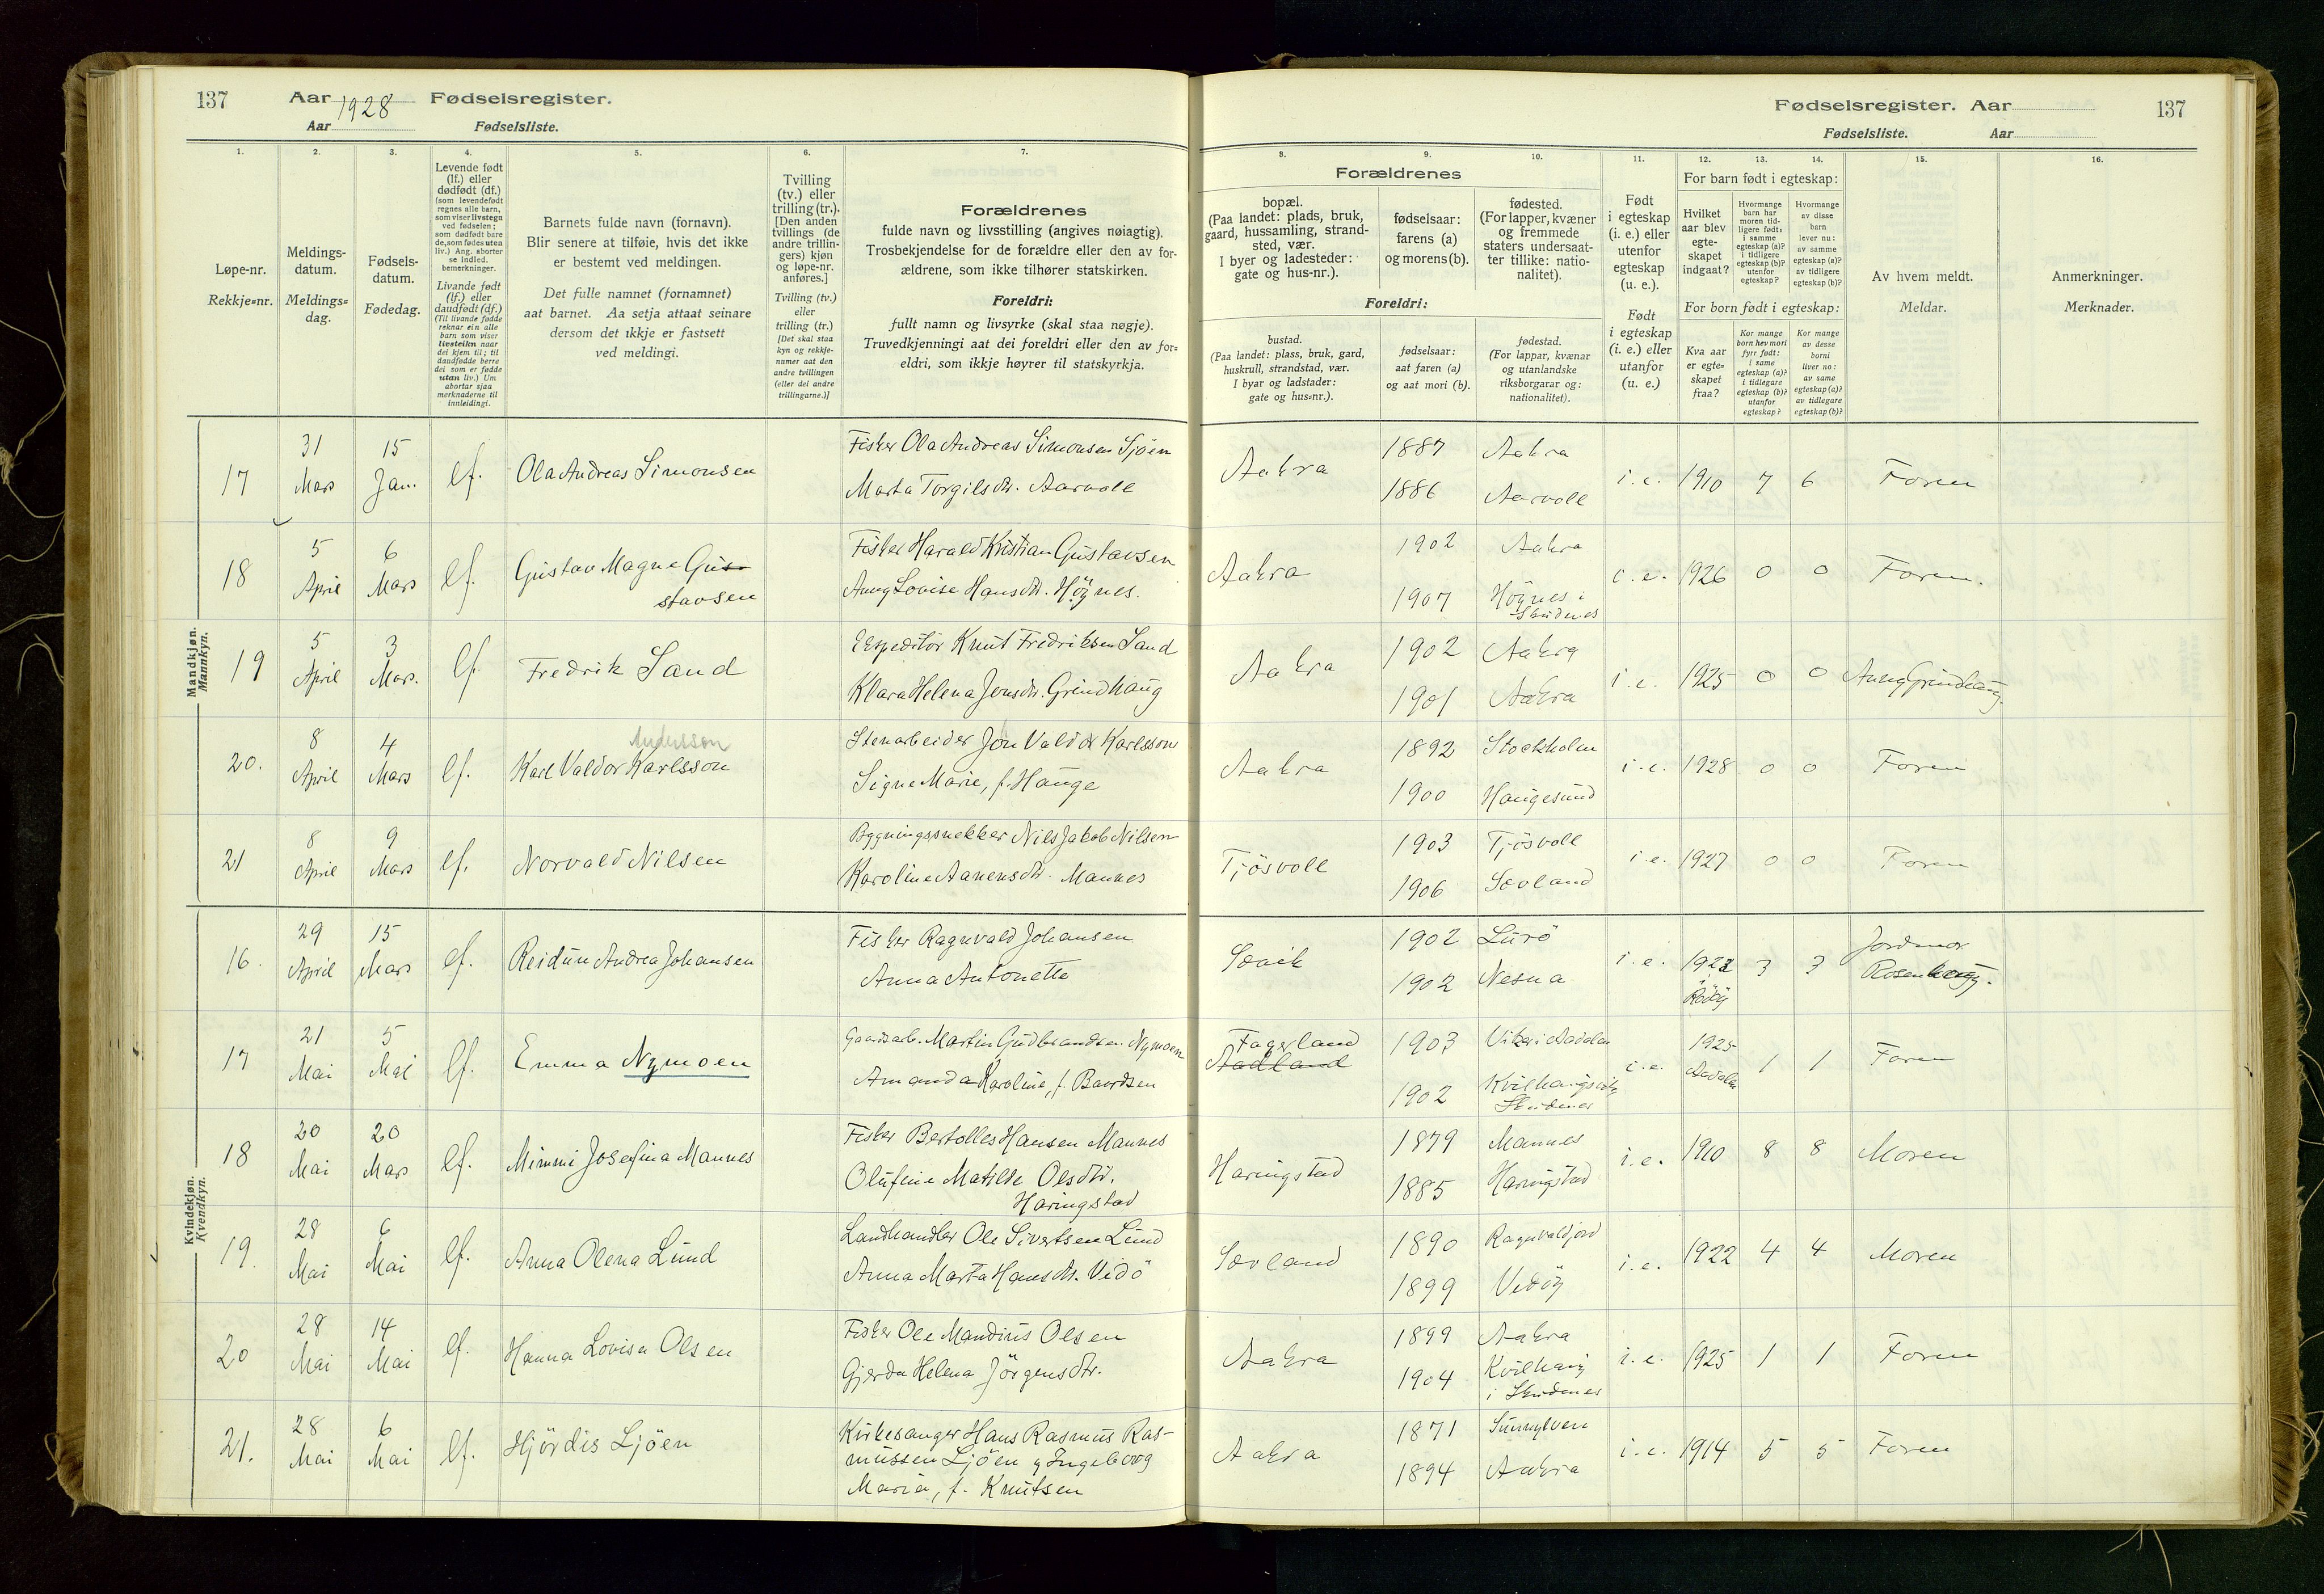 137 Aar 1928 Fødselsregister.
Aar Fødselsliste.
Fødselsregister. Aar 137
Fødselsliste. Aar
1. 2. 3. 4. 5. 6. 7. 8. 9. 10. 11. 12. 13. 14. 15. 16.
Løpe-nr.
Rekkje=nr.
Meldings-
datum.
Meldings=
dag.
Fødsels-
datum.
Fødedag.
Levende født
(lf.) eller
dødfødt (df.)
(som levendefødt
regnes alle barn,
som viser livstegn
ved fødselen;
som dødfødt bare
de, som fødes uten
liv.) Ang. aborter
se indled.
bemerkninger.
Livande født
(lf.) eller
daudfødt (df.)
(Til livande fødde
reknar ein alle
barn som viser
livsteikn naar
dei kjem til; til
daudfødde berre
dei som er fødde
utan liv.) Um
abortar sjaa
merknaderne til
innleidingi.
Barnets fulde navn (fornavn).
Blir senere at tilføie, hvis det ikke
er bestemt ved meldingen.
Det fulle namnet (fornamnet)
aat barnet. Aa setja attaat seinare
dersom det ikkje er fastsett
ved meldingi.
Tvilling
(tv.) eller
trilling (tr.).
[Den anden
tvillings (de
andre trillin-
gers) kjøn
og løpe-nr.
anføres.]
Tvilling (tv.)
eller
trilling (tr.)
[Det skal staa
kyn og rekkje-
numer aat den
andre tvillingen
(eller dei andre
trillingarne.)]
Forældrenes
fulde navn og livsstilling (angives nøiagtig).
Trosbekjendelse for de forældre eller den av for-
ældrene, som ikke tilhører statskirken.
Foreldri:
fullt namn og livsyrke (skal staa nøgje).
Truvedkjenningi aat dei foreldri eller den av for=
eldri, som ikkje høyrer til statskyrkja.
Forældrenes
bopæl.
(Paa landet: plads, bruk,
gaard, hussamling, strand-
sted, vær.
I byer og ladesteder:
gate og hus-nr.).
fødselsaar:
farens (a)
og morens (b).
fødested.
(For lapper, kvæner
og fremmede
staters undersaat-
ter tillike: natio-
nalitet).
Foreldri:
bustad.
(Paa landet: plass, bruk, gard,
huskrull, strandstad, vær.
I byar og ladstader:
gate og hus=nr.).
fødselsaar:
aat faren (a)
og aat mori (b).
fødestad.
(For lappar, kvænar
og utanlandske
riksborgarar og:
nationalitet).
Født
i egteskap
(i. e.) eller
utenfor
egteskap
(u. e.).
Født
i egteskap
(i. e.) eller
utanfor
(u. e.)
For barn født i egteskap:
Hvilket
aar blev
egte-
skapet
indgaat?
Hvormange
barn har
moren tid-
ligere født:
i samme
egteskap (a)?
i tidligere
egteskap (b)?
utenfor
egteskap?
Hvormange
av disse
barn
lever nu:
av samme
egteskap (a)?
av tidligere
egteskap (b)?
For born født i egteskap:
Kva aar
er egte=
skapet
fraa?
Kor mange
born hev mori
fyrr født:
i same
egteskap (a)?
i tidlegare
egteskap (b)?
utanfor
egteskap?
Kor mange
av desse
borni
liver no:
av same
egteskap (a)?
av tidlegare
egteskap (b)?
Av hvem meldt.
Meldar.
Anmerkninger.
Merknader.
Mandkjøn.
Mannkyn.
17 31 Mars 15 Jan. lf. Ola Andreas Simonsen
Fisker Ola Andreas Simonsen Sjöen
Marta Torgilsdtr. Aarvoll
Aakra 1887 Aakra
1886 Aarvoll
i. e. 1910 7 6 Faren
18 5 April 6 Mars lf. Gustav Magne Gu-
stavsen
Fisker Harald Kristian Gustavsen
Anny Lovise Hansdtr. Höynes.
Aakra 1902 Aakra
1907 Höynes i
Skudenes
i. e. 1926 0 0 Faren.
19 5 April 3 Mars. lf. Fredrik Sand
Expeditör Knut Fredriksen Sand
Klara Helena Jonsdtr. Grindhaug
Aakra 1902 Aakra
1901 Aakra
i. e. 1925 0 0 Anny Grindhaug.
20. 8 April 4 Mars lf. Karl Valdor Karlsson
Andersson
Stenarbeider Jon Valdor Karlsson
Signe Marie, f. Hauge
Aakra 1892 Stockholm
1900 Haugesund
i. e. 1928 0 0 Faren
21 8 April 9 Mars lf. Norvald Nilsen
Bygningssnekker Nils Jakob Nilsen
Karoline Aanensdtr. Mannes
Tjösvoll 1903 Tjösvoll
1906 Sævland
i. e. 1927 0 0 Faren
Kvindekjøn.
Kvendkyn.
16. 29 April 15 Mars lf. Reidun Andrea Johansen
Fisker Ragnvald Johansen
Anna Antonette
Sævik 1902 Lurö
1902 Nesna
i. e. 1922 3 3 Jordmor
Rosenberg.
17 21 Mai 5 Mai lf. Emma Nymoen
Gaardsarb. Martin Gudbrandsen Nymoen
Amanda Karoline, f. Baardsen
Fagerland
Aadland
1903 Viker i Aadalen
1902 Kvilhaugsvik
Skudenes
i. e. 1925 Aadalen 1 1 Faren
18 20 Mai 20 Mars lf. Mimmi Josefina Mannes
Fisker Bertolles Hansen Mannes
Olufine Matilde Olsdtr.
Haringstad
Haringstad 1879 Mannes
1885 Haringstad
i. e. 1910 8 8 Moren
19. 28 Mai 6 Mai lf. Anna Olena Lund
Landhandler Ole Sivertsen Lund
Anna Marta Hansdtr. Vedö
Sævland 1890 Ragnvaldjord
1899 Vedöy
i. e. 1922 4 4 Moren
20 28 Mai 14 Mai lf. Hanna Lovisa Olsen
Fisker Ole Mandius Olsen
Gjerda Helena Jörgensdtr.
Aakra 1899 Aakra
1904 Kvilhaug
i Skudenes
i. e. 1925 1 1 Faren
21. 28 Mai 6 Mai lf. Hjördis Ljöen
Kirkesanger Hans Rasmus Ras-
mussen Ljöen og Ingeborg
Maria, f. Knutsen
Aakra 1871 Sunnylven
1894 Aakra
i. e. 1914 5 5 Faren